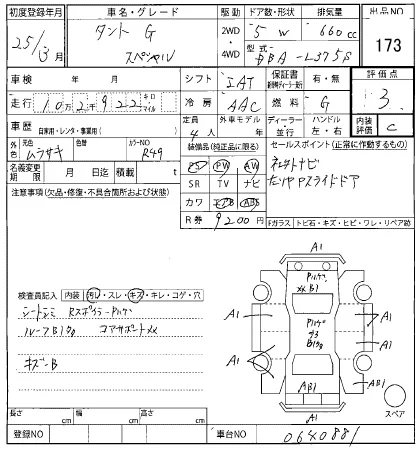 初度登録年月
車名・グレード
駆動
ドア数・形状
排気量
出品NO
25/3月
タント G
スペシャル
2WD
4WD
5 W
660cc
型式
DBA-L375S
173
車検 年 月
シフト
IAT
保証書
有・無
評価点
3
走行 10万2千922
キロ
マイル
冷房
AAC
燃料
G
車歴 自家用・レンタ・事業用( )
定員
4人
外車モデル
年
ディーラー
並行
ハンドル
左・右
内装評価
C
元色
ムラサキ
色替
カラーNO
R49
装備品(純正品に限る)
セールスポイント(正常に作動するもの)
名義変更期限 月 日迄
積載 t
PS PW AW
SR TV ナビ
カワ エアB ABS
R券 9200円
社外ナビ
左リヤPスライドドア
注意事項(欠品・修復・不具合箇所および状態)
Fガラス トビ石・キズ・ヒビ・ワレ・リペア跡
検査員記入 内装 汚レ・スレ・キズ・キレ・コゲ・穴
シートシミ Rスポイラー
ルーフ
コアサポート
キズ-B
A1
B1
A1
A1
A1
AB1
AB1
A1
スペア
長さ cm
幅 cm
高さ cm
登録NO
車台NO
0640881